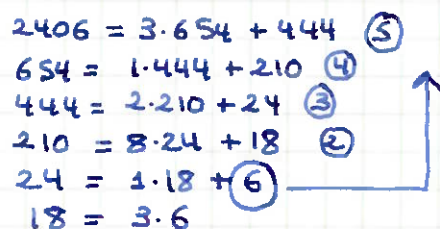 2406 = 3·654 + 444 ⑤
654 = 1·444 + 210 ④
444 = 2·210 + 24 ③
210 = 8·24 + 18 ②
24 = 1·18 + 6
18 = 3·6